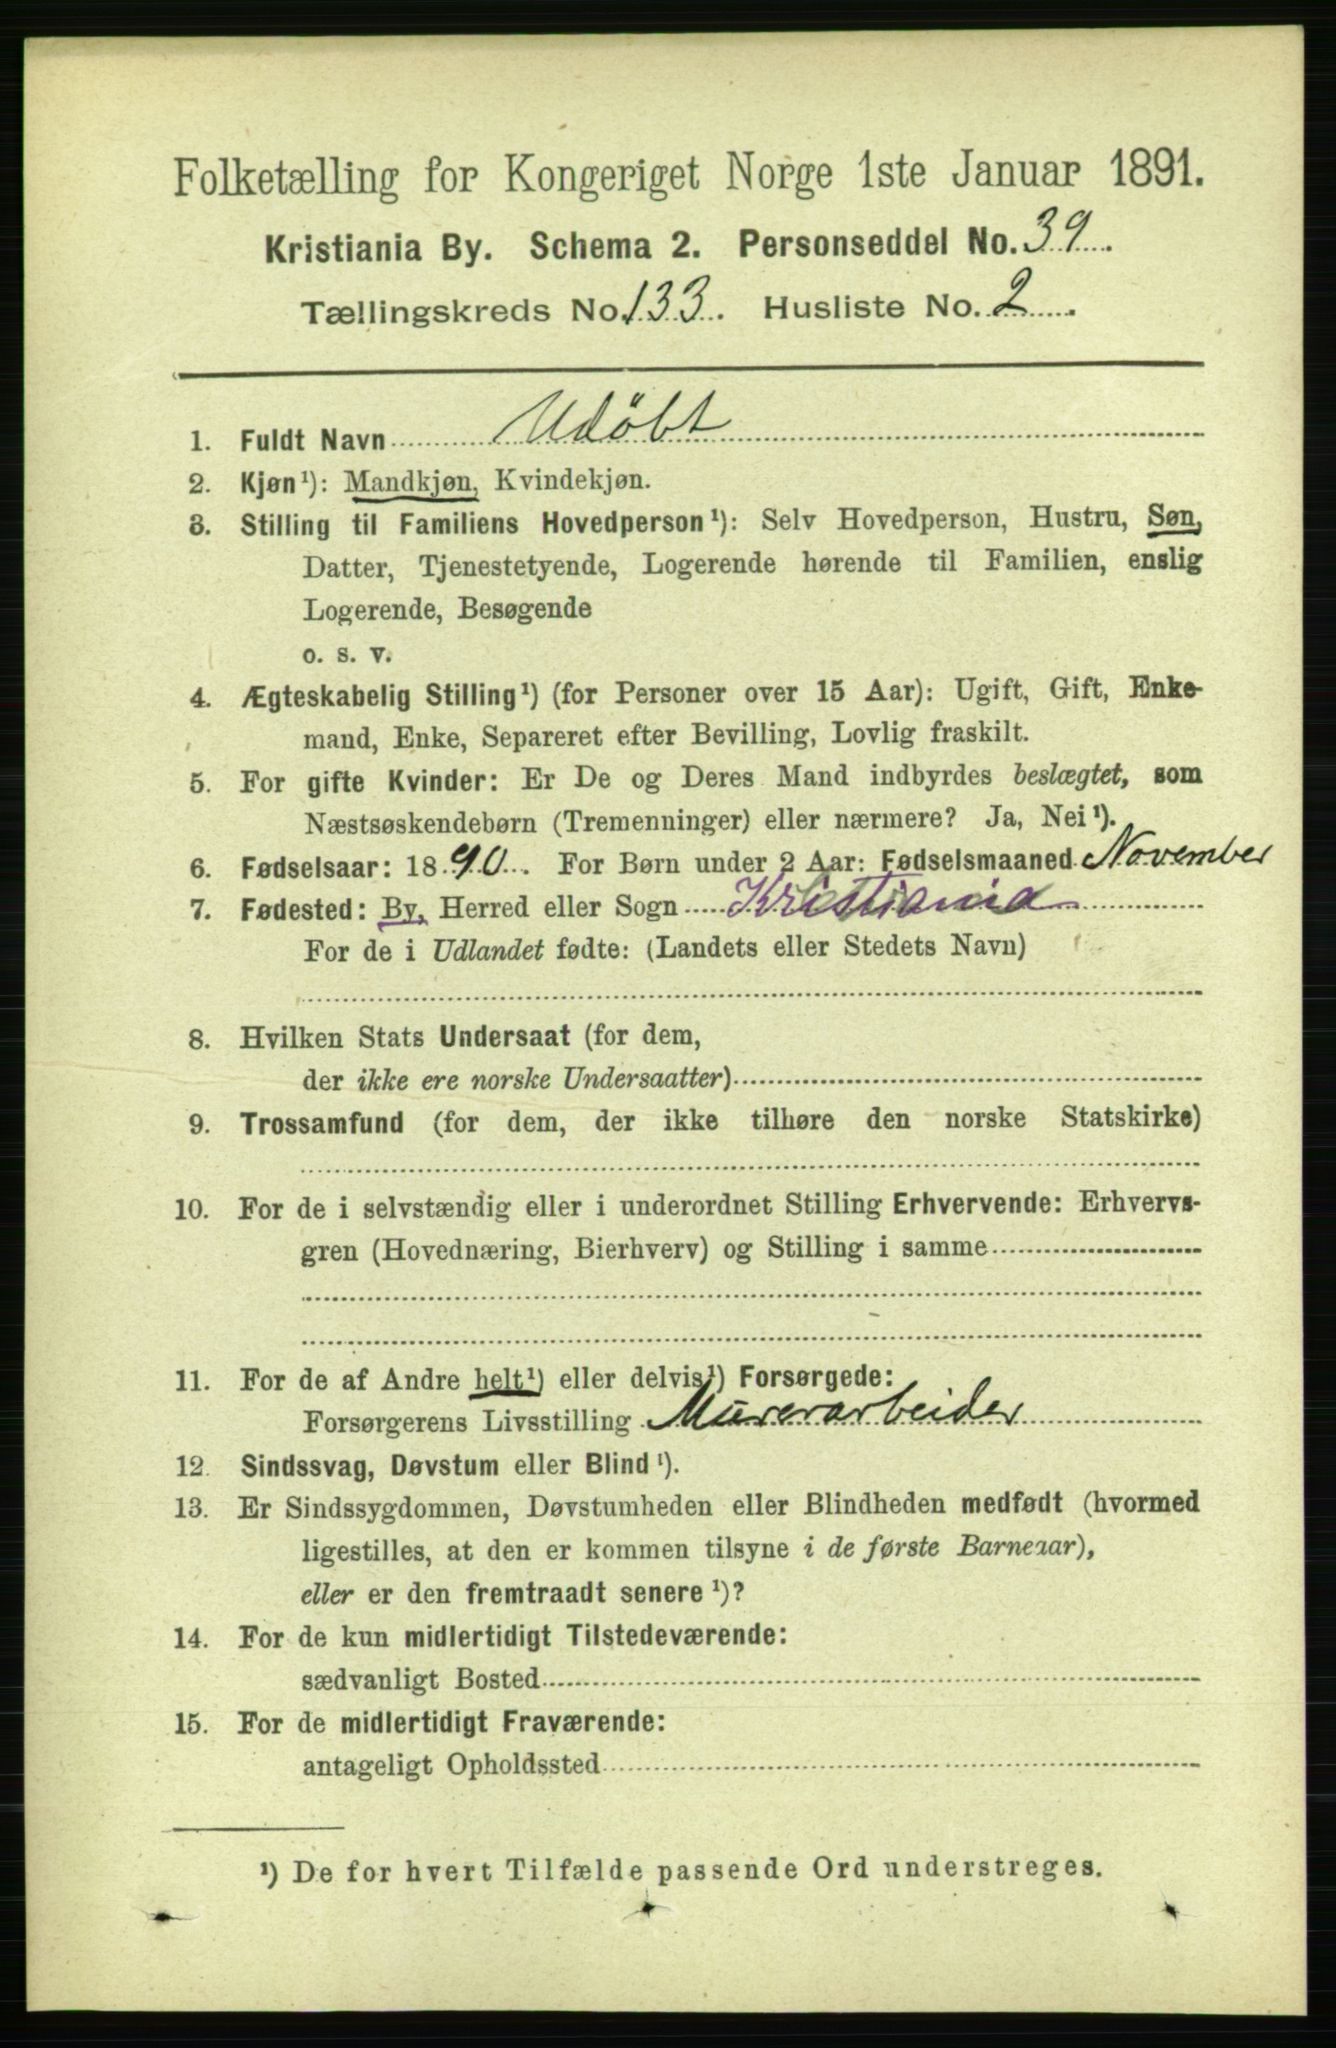 Folketælling for Kongeriget Norge 1ste Januar 1891.
Kristiania By. Schema 2. Personseddel No. 39.
Tællingskreds No. 133. Husliste No. 2.
1. Fuldt Navn Udöbt
2. Kjøn¹): Mandkjøn, Kvindekjøn.
3. Stilling til Familiens Hovedperson¹): Selv Hovedperson, Hustru, Søn,
Datter, Tjenestetyende, Logerende hørende til Familien, enslig
Logerende, Besøgende
o. s. v.
4. Ægteskabelig Stilling¹) (for Personer over 15 Aar): Ugift, Gift, Enke-
mand, Enke, Separeret efter Bevilling, Lovlig fraskilt.
5. For gifte Kvinder: Er De og Deres Mand indbyrdes beslægtet, som
Næstsøskendebørn (Tremenninger) eller nærmere? Ja, Nei¹).
6. Fødselsaar: 1890. For Børn under 2 Aar: Fødselsmaaned November
7. Fødested: By, Herred eller Sogn Kristiania
For de i Udlandet fødte: (Landets eller Stedets Navn)
8. Hvilken Stats Undersaat (for dem,
der ikke ere norske Undersaatter)
9. Trossamfund (for dem, der ikke tilhøre den norske Statskirke)
10. For de i selvstændig eller i underordnet Stilling Erhvervende: Erhvervs-
gren (Hovednæring, Bierhverv) og Stilling i samme
11. For de af Andre helt¹) eller delvis¹) Forsørgede:
Forsørgerens Livsstilling Murerarbeider
12. Sindssvag, Døvstum eller Blind¹).
13. Er Sindssygdommen, Døvstumheden eller Blindheden medfødt (hvormed
ligestilles, at den er kommen tilsyne i de første Barneaar),
eller er den fremtraadt senere¹)?
14. For de kun midlertidigt Tilstedeværende:
sædvanligt Bosted
15. For de midlertidigt Fraværende:
antageligt Opholdssted
¹) De for hvert Tilfælde passende Ord understreges.